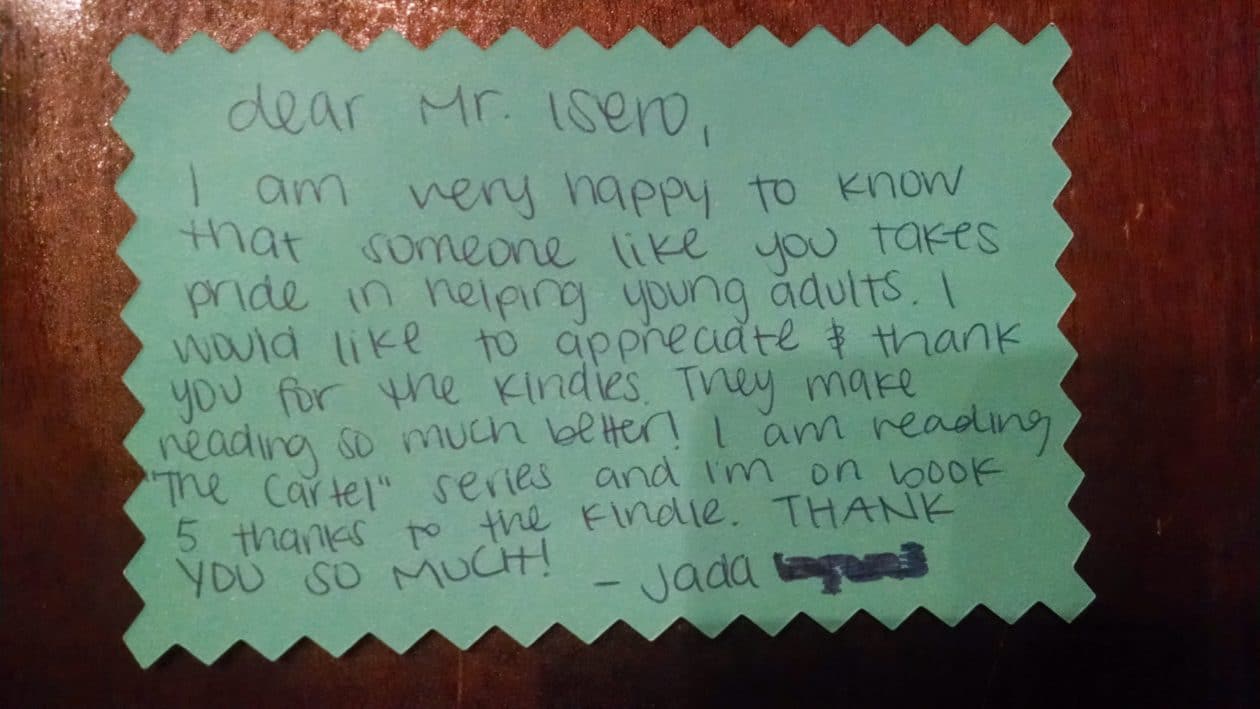 dear Mr. Isero,
I am very happy to know
that someone like you takes
pride in helping young adults. I
would like to appreciate & thank
you for the Kindles. They make
reading so much better! I am reading
"The Cartel" series and I'm on book
5 thanks to the Kindle. THANK
YOU SO MUCH!
- Jada